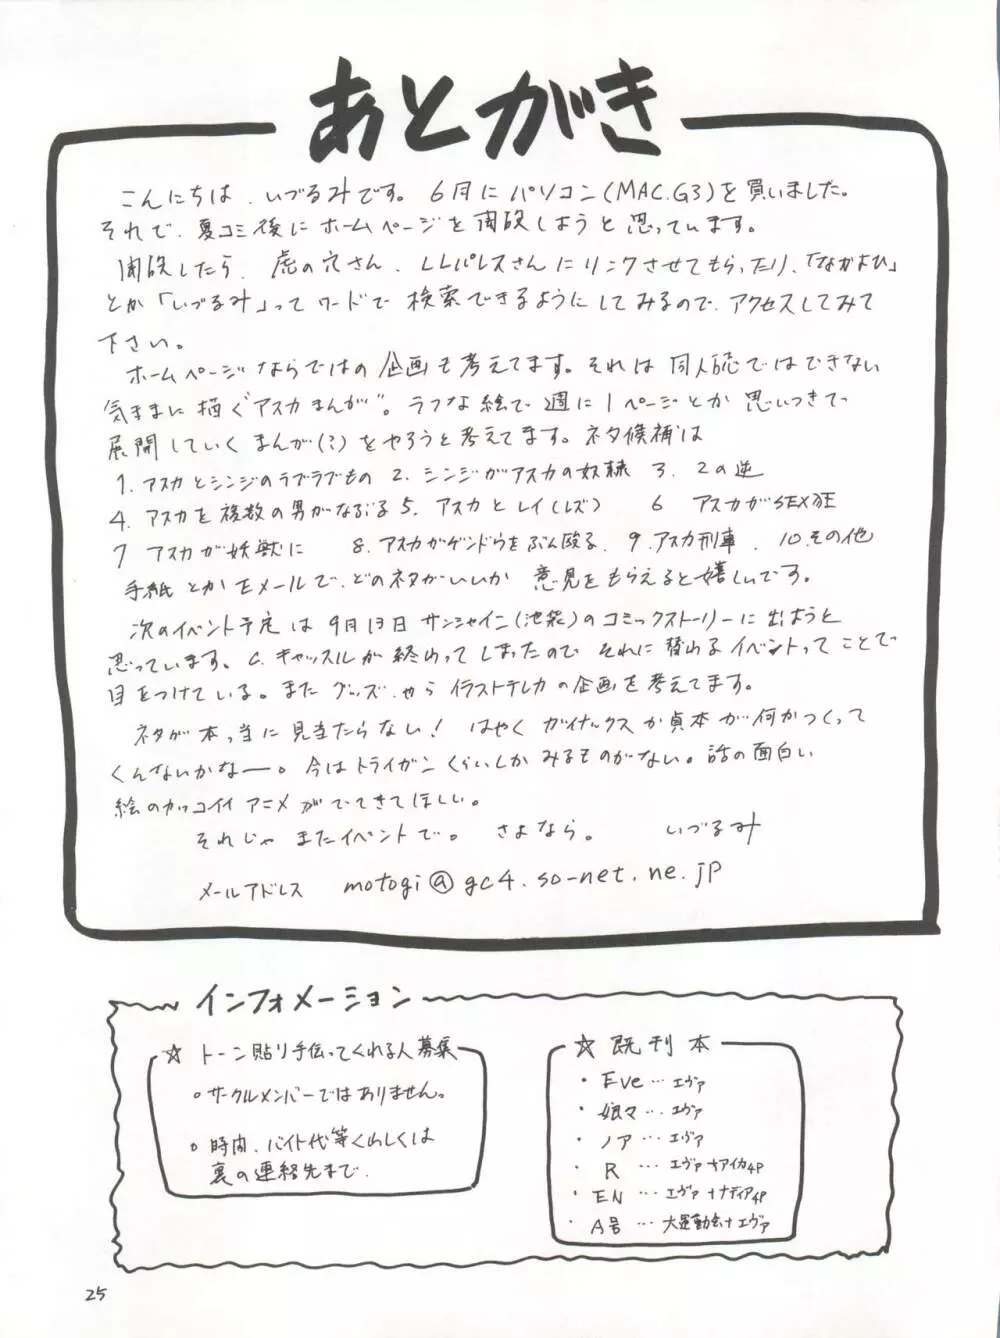 あとがき
こんにちは、いづるみです。6月にパソコン(MAC.G3)を買いました。
それで、夏コミ後にホームページを開設しようと思っています。
開設したら、虎の穴さん、LLパレスさんにリンクさせてもらったり、「なかよひ」
とか「いづるみ」ってワードで検索できるようにしてみるので、アクセスしてみて
下さい。
ホームページならではの企画も考えてます。それは同人誌ではできない
気ままに描く"アスカまんが"。ラフな絵で週に1ページとか思いつきで
展開していくまんが(?)をやろうと考えてます。ネタ候補は
1. アスカとシンジのラブラブもの 2. シンジがアスカの奴隷 3. 2の逆
4. アスカを複数の男がなぶる 5. アスカとレイ(レズ) 6 アスカがSEX狂
7 アスカが妖獣に 8. アスカがゲンドウをぶん殴る、9. アスカ刑事、10. その他
手紙とかEメールで、どのネタがいいか意見をもらえると嬉しいです。
次のイベント予定は9月13日サンシャイン(池袋)のコミックストーリーに出ようと
思っています。C.キャッスルが終わってしまったので、それに替わるイベントってことで
目をつけている。またグッズ、やらイラストテレカの企画を考えてます。
ネタが本っ当に見当たらない! はやくガイナックスか貞本が何かつくって
くんないかなー。今はトライガンくらいしかみるものがない。話の面白い
絵のカッコイイアニメがでてきてほしい。
それじゃまたイベントで。さよなら。 いづるみ
メールアドレス motogi@gc4.so-net.ne.jp
インフォメーション
☆ トーン貼り手伝ってくれる人募集
○サークルメンバーではありません。
○時間、バイト代等くわしくは
裏の連絡先まで.
☆ 既刊本
・Eve…エヴァ
・娘々…エヴァ
・ノア…エヴァ
・R…エヴァ+アイカ4P
・EN…エヴァ+ナディア4P
・A号…大運動会+エヴァ
25